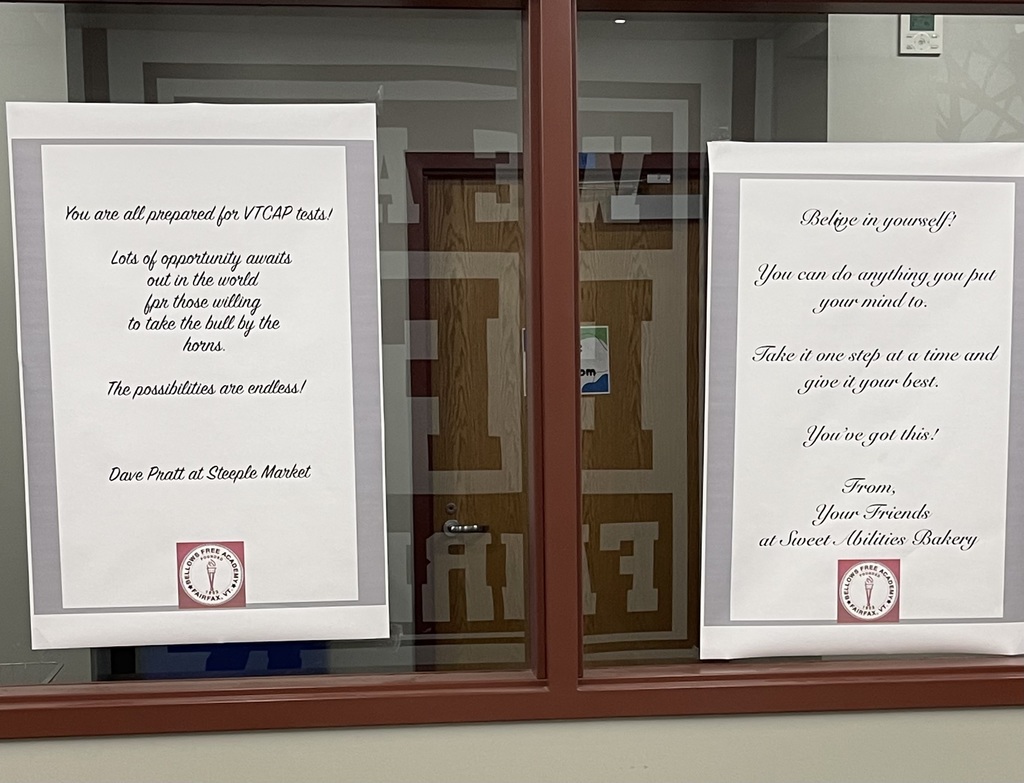 You are all prepared for VTCAP tests!
Lots of opportunity awaits
out in the world
fpr those willing
to take the bull by the
horns.
The possibilities are endless!
Dave Pratt at Steeple Market
BELLOWS FREE ACADEMY
FOUNDED
1903
FAIRFAX, VT.
Belive in yourself!
You can do anything you put
your mind to.
Take it one step at a time and
give it your best.
You've got this!
From,
Your Friends
at Sweet Abilities Bakery
BELLOWS FREE ACADEMY
FOUNDED
1903
FAIRFAX, VT.